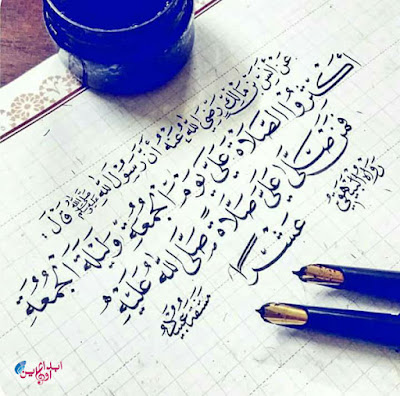 عَنْ أَنَسِ بْنِ مَالِكٍ رَضِيَ اللهُ عَنْهُ أَنَّ رَسُولَ اللهِ ﷺ قَالَ:
أَكْثِرُوا الصَّلَاةَ عَلَيَّ يَوْمَ الْجُمُعَةِ وَلَيْلَةَ الْجُمُعَةِ
فَمَنْ صَلَّى عَلَيَّ صَلَاةً صَلَّى اللهُ عَلَيْهِ
عَشْرًا
رَوَاهُ الْبَيْهَقِيُّ